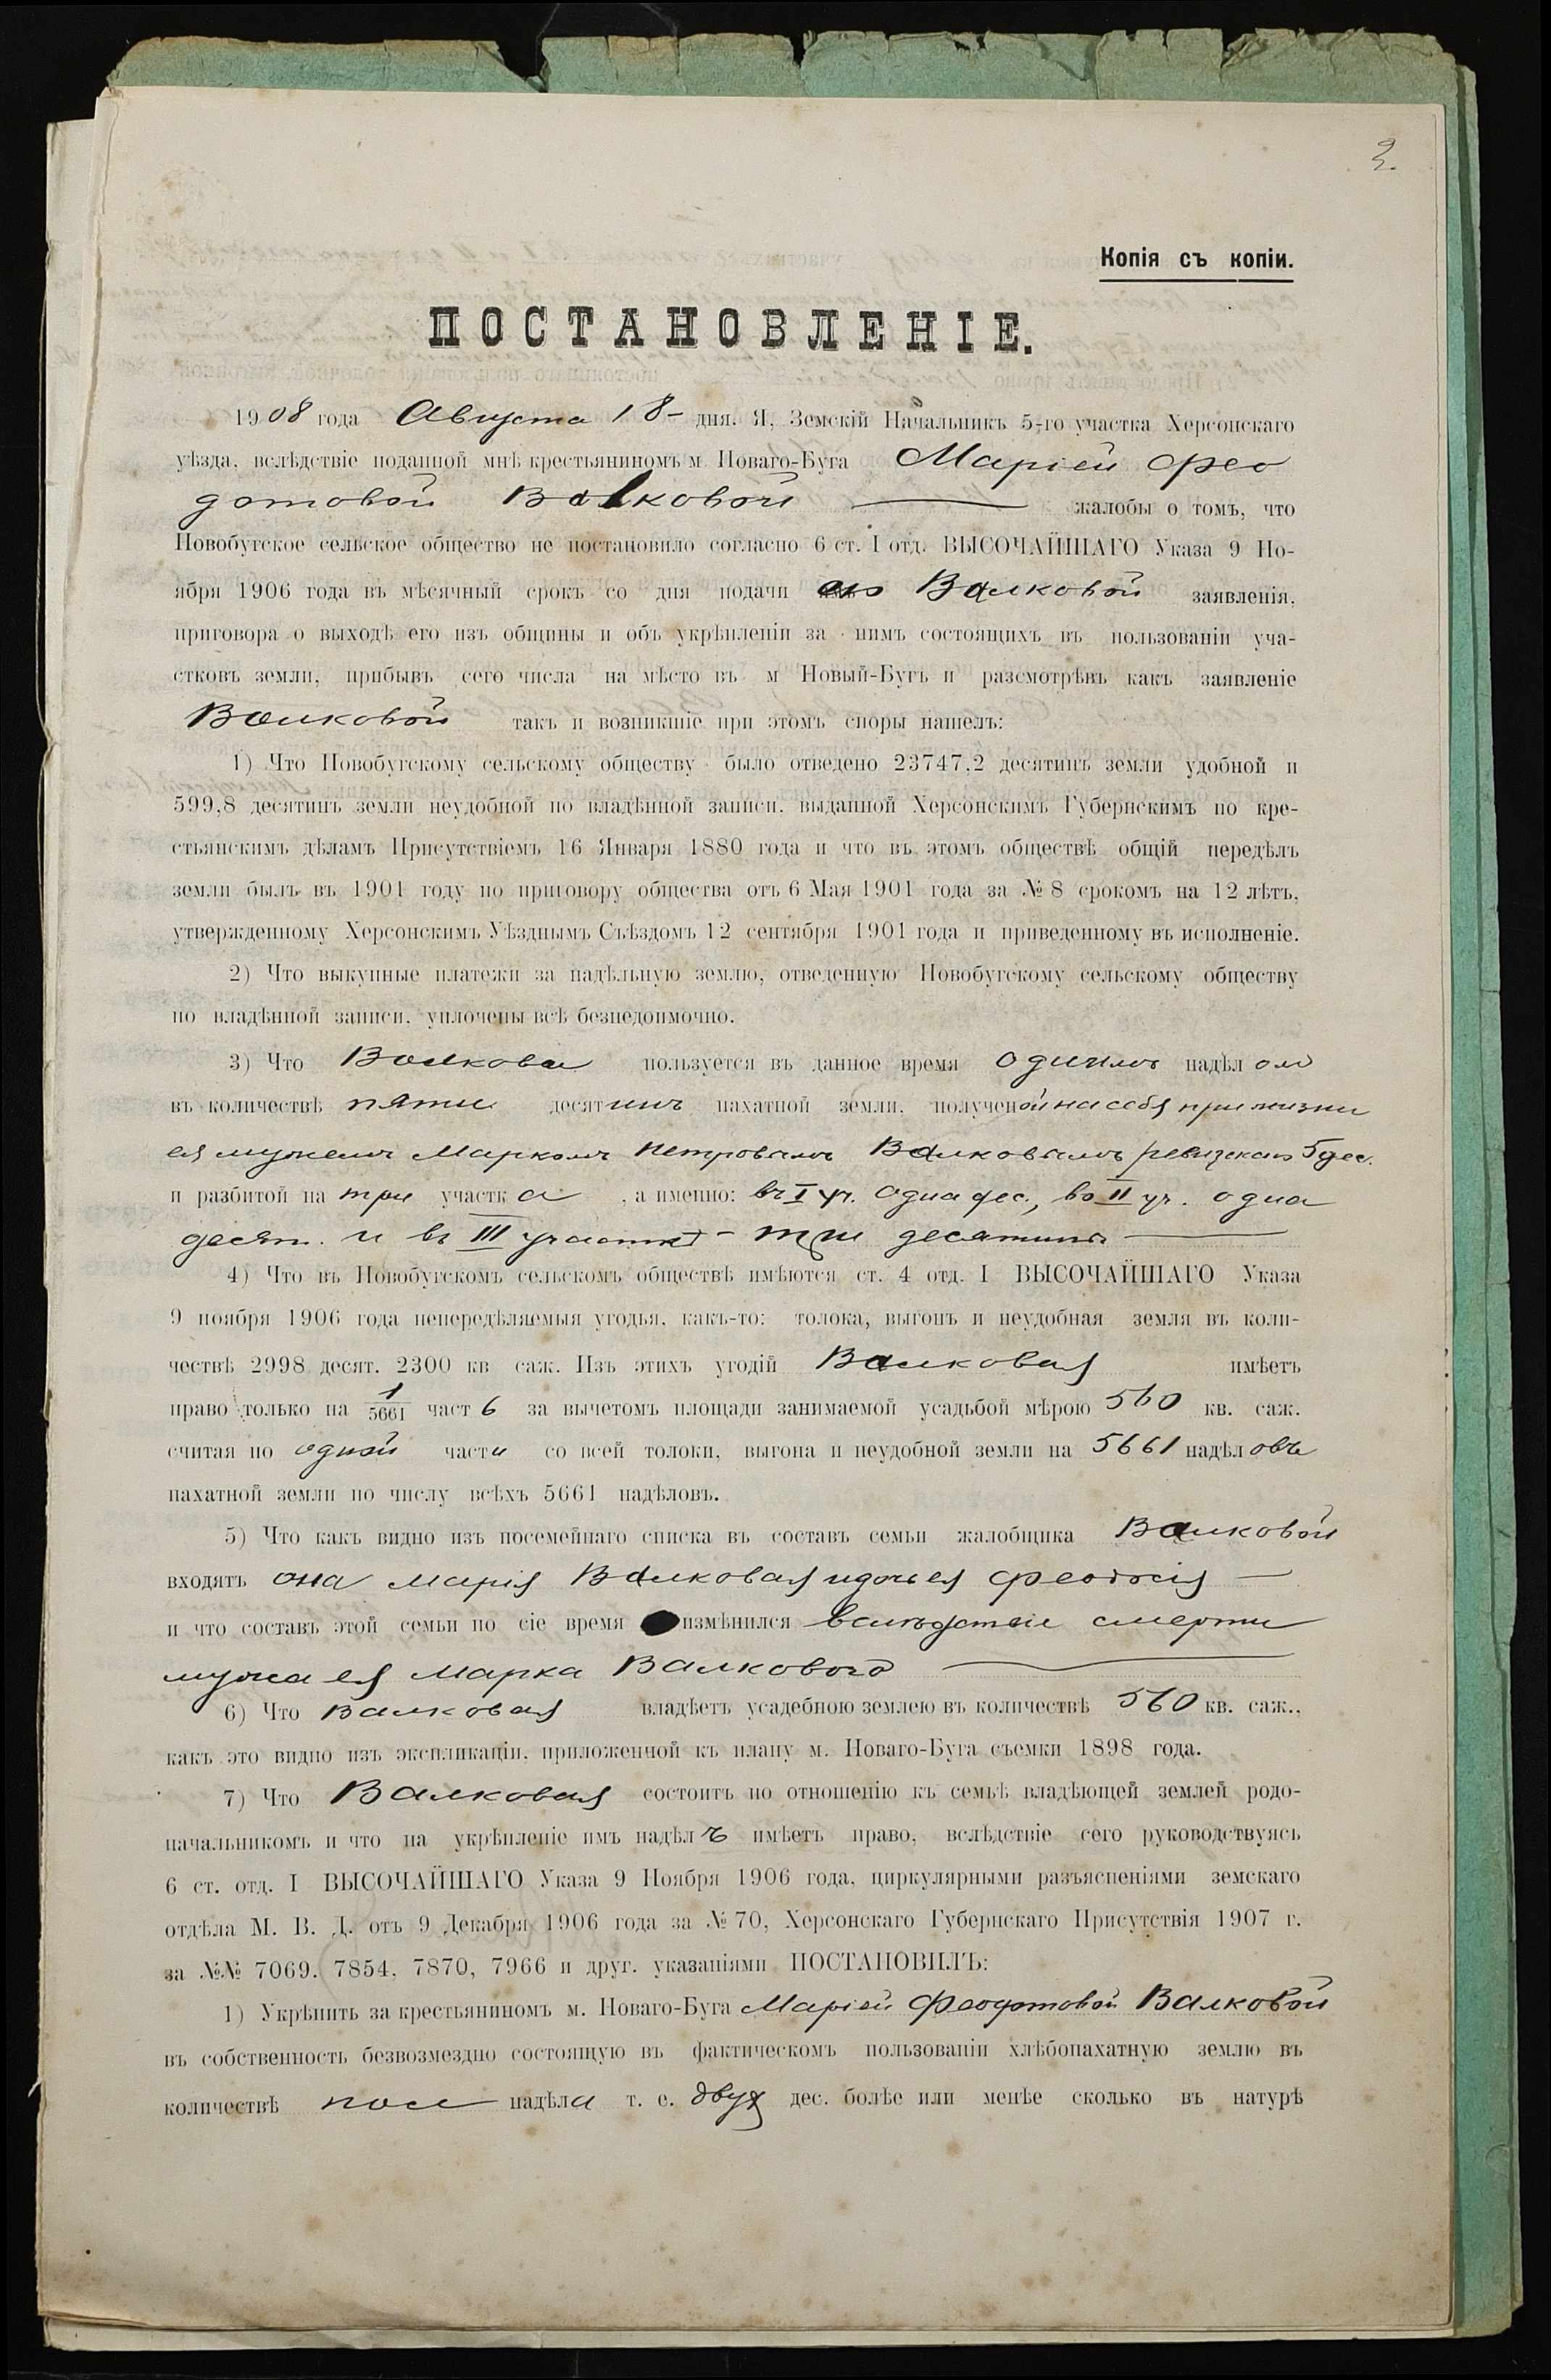 2.
Копія съ копіи.
ПОСТАНОВЛЕНІЕ.
1908 года Августа 18- дня. Я, Земскій Начальникъ 5-го участка Херсонскаго
уѣзда, вслѣдствіе поданной мнѣ крестьяниномъ м. Новаго-Буга Маріей Фео
дотовой Валковой жалобы о томъ, что
Новобугское сельское общество не постановило согласно 6 ст. I отд. ВЫСОЧАЙШАГО Указа 9 Но-
ября 1906 года въ мѣсячный срокъ со дня подачи ею Валковой заявленія,
приговора о выходѣ его изъ общины и объ укрѣпленіи за нимъ состоящихъ въ пользованіи уча-
стковъ земли, прибывъ сего числа на мѣсто въ м Новый-Бугъ и разсмотрѣвъ какъ заявленіе
Валковой такъ и возникшіе при этомъ споры нашелъ:
1) Что Новобугскому сельскому обществу было отведено 23747,2 десятинъ земли удобной и
599,8 десятинъ земли неудобной по владѣнной записи, выданной Херсонскимъ Губернскимъ по кре-
стьянскимъ дѣламъ Присутствіемъ 16 Января 1880 года и что въ этомъ обществѣ общій передѣлъ
земли былъ въ 1901 году по приговору общества отъ 6 Мая 1901 года за № 8 срокомъ на 12 лѣтъ,
утвержденному Херсонскимъ Уѣзднымъ Съѣздомъ 12 сентября 1901 года и приведенному въ исполненіе.
2) Что выкупные платежи за надѣльную землю, отведенную Новобугскому сельскому обществу
по владѣнной записи, уплочены всѣ безнедоимочно.
3) Что Валкова пользуется въ данное время однимъ надѣломъ
въ количествѣ пяти десятинъ пахатной земли, полученой на себя при жизни
ея мужемъ Маркомъ Петровымъ Валковымъ 5 дес.
и разбитой на три участка, а именно: въ I уч. одна дес., во II уч. одна
десят. и въ III участкѣ - три десятины
4) Что въ Новобугскомъ сельскомъ обществѣ имѣются ст. 4 отд. I ВЫСОЧАЙШАГО Указа
9 ноября 1906 года непередѣляемыя угодья, какъ-то: толока, выгонъ и неудобная земля въ коли-
чествѣ 2998 десят. 2300 кв саж. Изъ этихъ угодій Валковая имѣетъ
право только на 1/5661 часть за вычетомъ площади занимаемой усадьбой мѣрою 560 кв. саж.
считая по одной части со всей толоки, выгона и неудобной земли на 5661 надѣловъ
пахатной земли по числу всѣхъ 5661 надѣловъ.
5) Что какъ видно изъ посемейнаго списка въ составъ семьи жалобщика Валковой
входятъ она Марія Валковая и дочь ея
и что составъ этой семьи по сіе время измѣнился вслѣдствіе смерти
мужа ея Марка Валкового
6) Что Валковая владѣетъ усадебною землею въ количествѣ 560 кв. саж.,
какъ это видно изъ экспликаціи, приложенной къ плану м. Новаго-Буга съемки 1898 года.
7) Что Валковая состоитъ по отношенію къ семьѣ владѣющей землей родо-
начальникомъ и что на укрѣпленіе имъ надѣлъ имѣетъ право, вслѣдствіе сего руководствуясь
6 ст. отд. I ВЫСОЧАЙШАГО Указа 9 Ноября 1906 года, циркулярными разъясненіями земскаго
отдѣла М. В. Д. отъ 9 Декабря 1906 года за № 70, Херсонскаго Губернскаго Присутствія 1907 г.
за №№ 7069. 7854, 7870, 7966 и друг. указаніями ПОСТАНОВИЛЪ:
1) Укрѣпить за крестьяниномъ м. Новаго-Буга Маріей Феодотовой Валковой
въ собственность безвозмездно состоящую въ фактическомъ пользованіи хлѣбопахатную землю въ
количествѣ пол надѣла т. е. двух дес. болѣе или менѣе сколько въ натурѣ